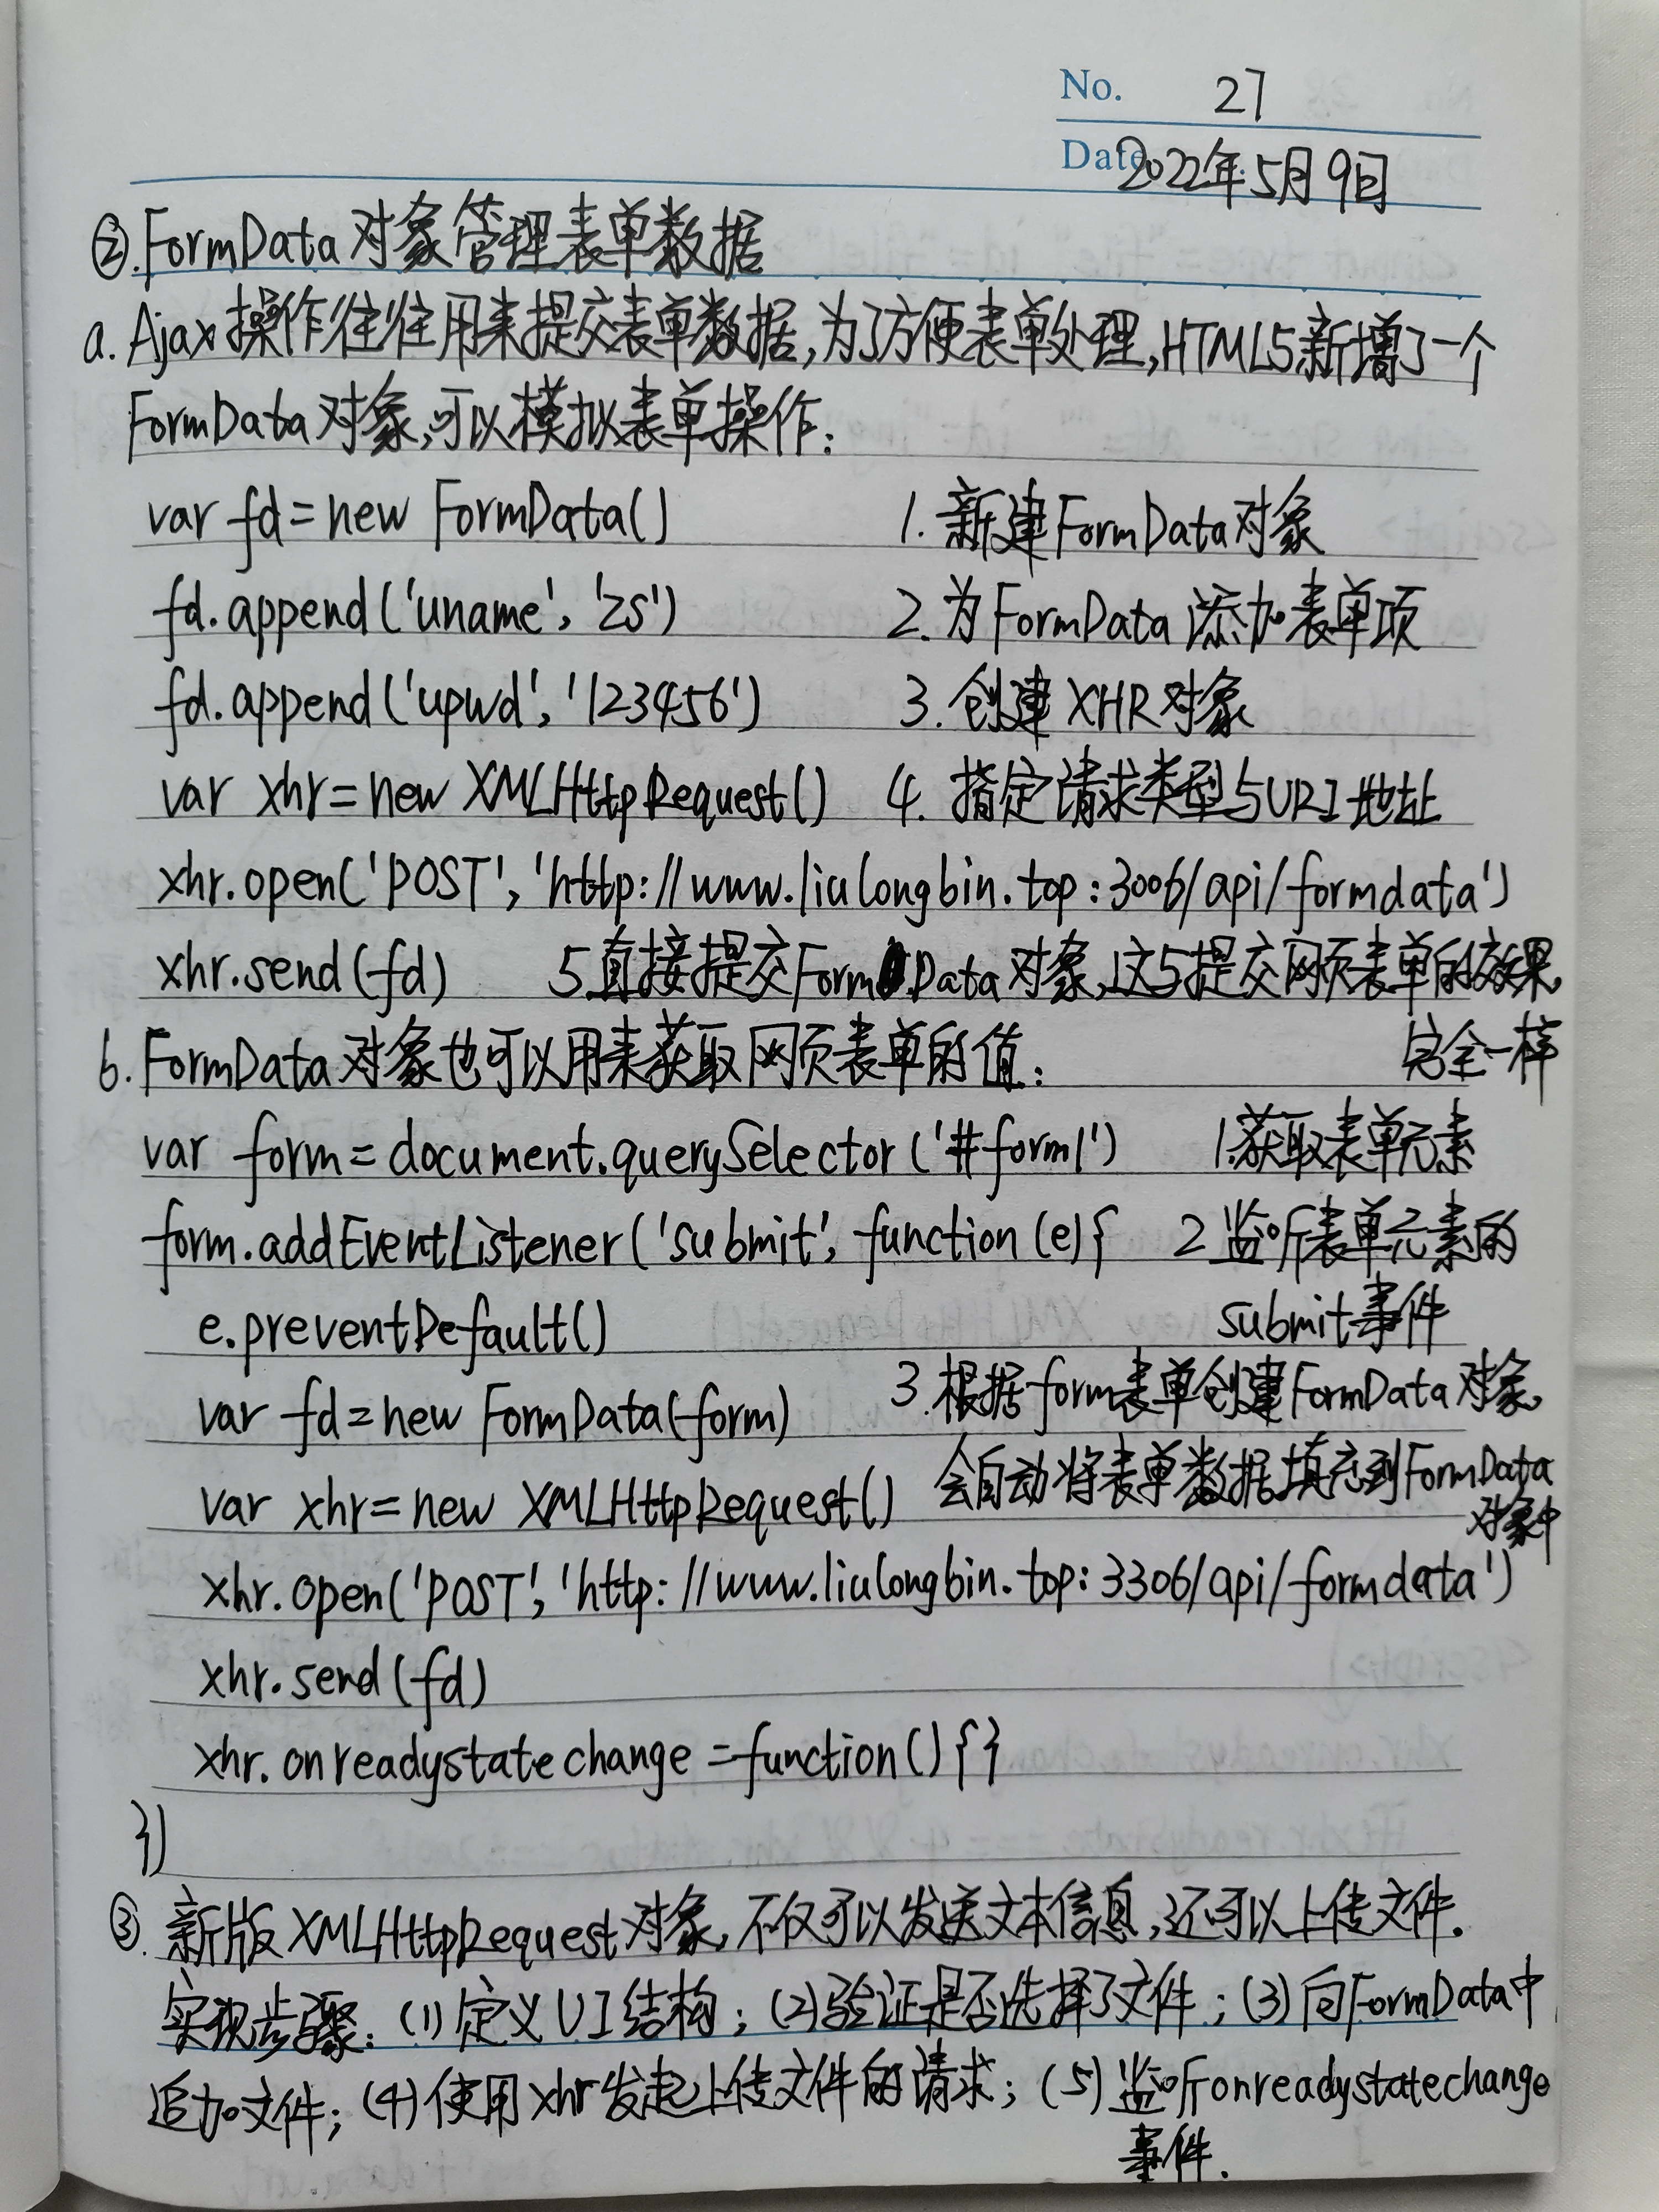 No. 27
Date 2022年5月9日
②.FormData对象管理表单数据
a. Ajax操作往往用来提交表单数据,为了方便表单处理,HTML5新增了一个
FormData对象,可以模拟表单操作:
var fd=new FormData() 1.新建FormData对象
fd.append('uname','zs') 2.为FormData添加表单项
fd.append('upwd','123456') 3.创建XHR对象
var xhr=new XMLHttpRequest() 4.指定请求类型与URL地址
xhr.open('POST','http://www.liulongbin.top:3006/api/formdata')
xhr.send(fd) 5.直接提交FormData对象,这与提交网页表单的效果,
完全一样
b. FormData对象也可以用来获取网页表单的值:
var form=document.querySelector('#form1') 1.获取表单元素
form.addEventListener('submit',function(e){ 2监听表单元素的
e.preventDefault() submit事件
var fd=new FormData(form) 3.根据form表单创建FormData对象,
var xhr=new XMLHttpRequest() 会自动将表单数据填充到FormData
对象中
xhr.open('POST','http://www.liulongbin.top:3306/api/formdata')
xhr.send(fd)
xhr.onreadystatechange=function(){}
})
③.新版XMLHttpRequest对象,不仅可以发送文本信息,还可以上传文件.
实现步骤:(1)定义UI结构;(2)验证是否选择了文件;(3)向FormData中
追加文件;(4)使用xhr发起上传文件的请求;(5)监听onreadystatechange
事件.